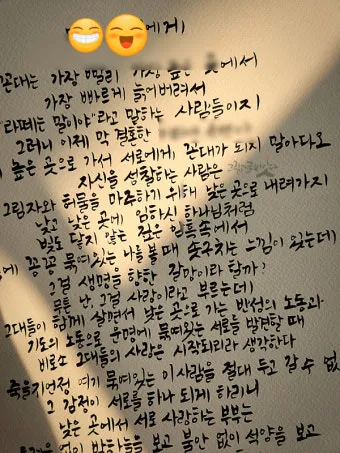 에게
꼰대는 가장 빨리 가장 높은 곳에서
가장 빠르게 늙어버려서
"라떼는 말이야"라고 말하는 사람들이지
그러니 이제 막 결혼한
높은 곳으로 가서 서로에게, 꼰대가 되지 말아다오
자신을 성찰하는 사람은
그림자와 허물을 마주하기 위해 낮은 곳으로 내려가지
낮고 낮은 곳에 임하신 하나님처럼
빛도 닿지 않는 깊은 어둠속에서
에 꽁꽁 묶여있는 나를 볼 때 솟구치는 느낌이 있는데
그걸 생명을 향한 갈망이라 할까?
무튼 난, 그걸 사랑이라고 부르는데
그대들이 함께 살면서 낮은 곳으로 가는 반성의 노동과
기도의 노동으로 운명에 묶여있는 서로를 발견할 때
비로소 그대들의 사랑은 시작되리라 생각한다
죽을지언정 여기 묶여있는 이 사람을 절대 두고 갈 수 없
그 감정이 서로를 하나 되게 하리니
낮은 곳에서 서로 사랑하는 부부는
없이 바하늘을 보고 불안 없이 석양을 보고